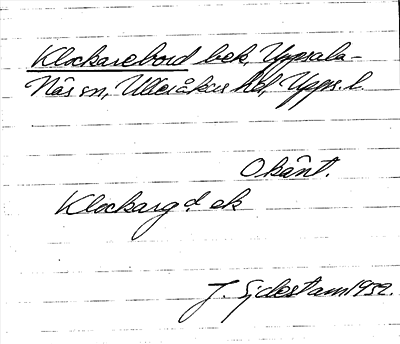 Klockarebord bek, Uppsala-
Näs sn, Ulleråkers hd, Upps. l.
Okänt.
Klockarg d. ek
J. Sjdestam 1932.